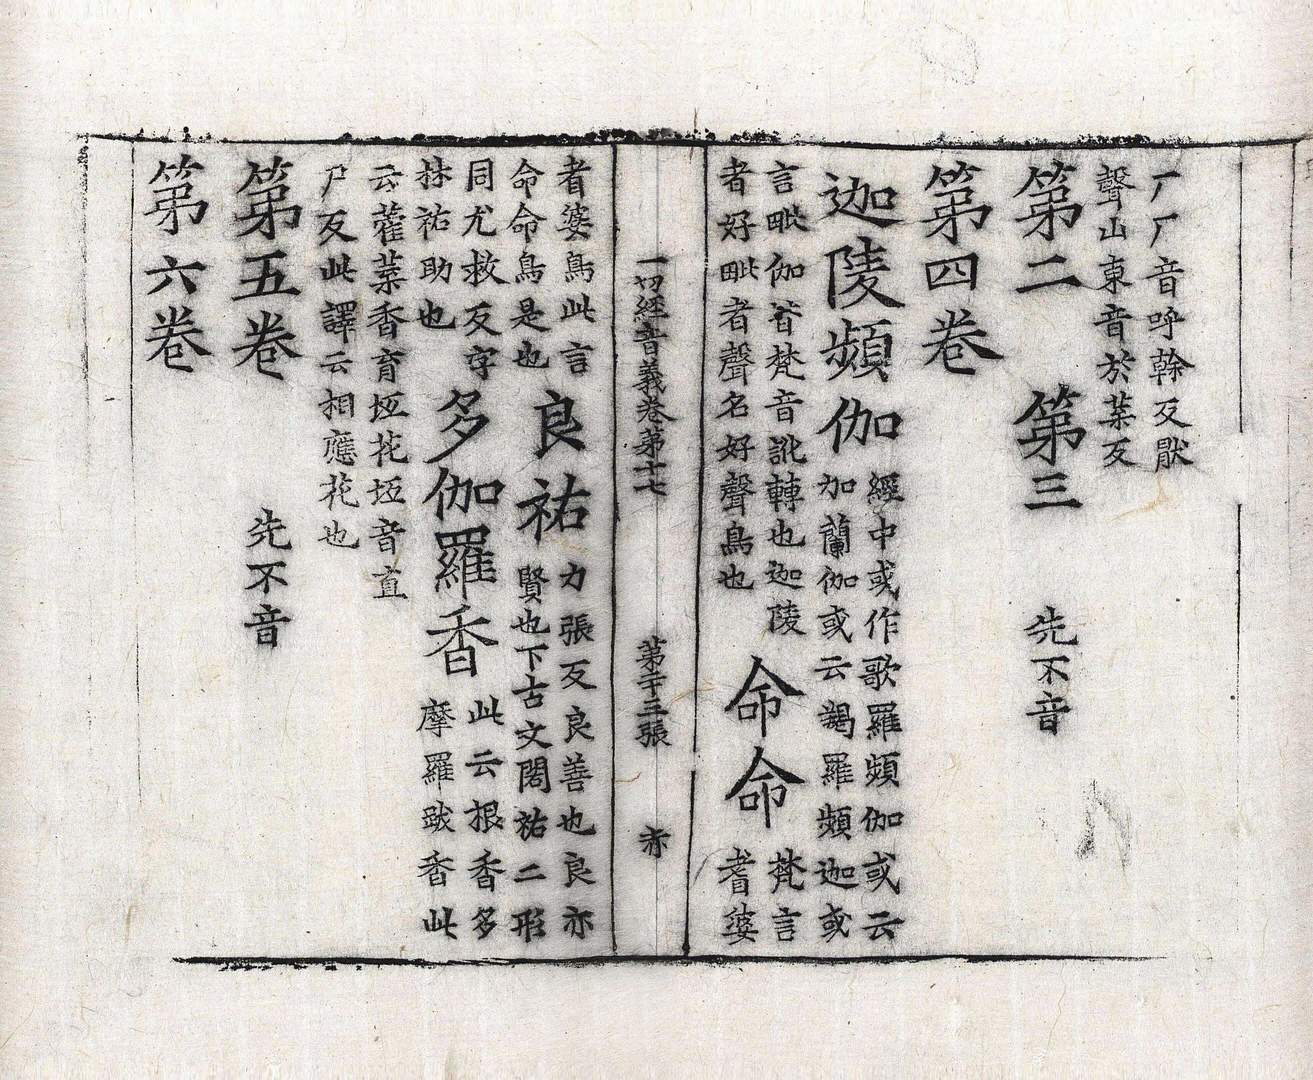 厂厂音呼幹反厭
聲山東音於葉反
第二 第三 先不音
第四卷
迦陵頻伽 經中或作歌羅頻伽或云
加蘭伽或云羯羅頻迦或
言毗伽皆梵音訛轉也迦陵
者好毗者聲名好聲鳥也
命命 梵言
耆婆
一切經音義卷第十七 第二十三張 亦
耆婆鳥此言
命命鳥是也
良祐 力張反良善也良亦
賢也下古文閎祐二形
同尤救反字
林祐助也
多伽羅香 此云根香多
摩羅跋香此
云藿葉香育坘花坘音直
尸反此譯云相應花也
第五卷 先不音
第六卷